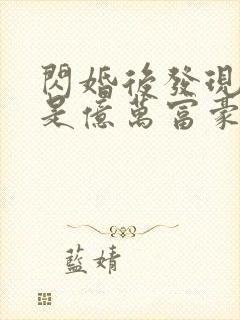 閃婚後發現
是億萬富豪
藍婧